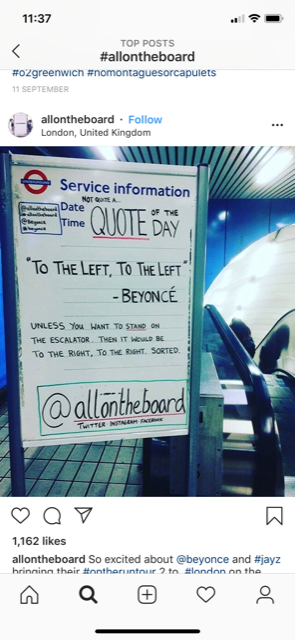 11:37
TOP POSTS
#allontheboard
#o2greenwich #nomontaguesorcapulets
11 SEPTEMBER
allontheboard · Follow
London, United Kingdom
Service information
@allontheboard
@allontheboard
@Beyonce
@beyonce
Date
Time
NOT QUITE A...
QUOTE OF THE DAY
"TO THE LEFT, TO THE LEFT."
-BEYONCÉ
UNLESS YOU WANT TO STAND ON
THE ESCALATOR. THEN IT WOULD BE
TO THE RIGHT, TO THE RIGHT. SORTED.
@allontheboard
TWITTER INSTAGRAM FACEBOOK
1,162 likes
allontheboard So excited about @beyonce and #jayz
bringing their #ontheruntour 2 to #london on the